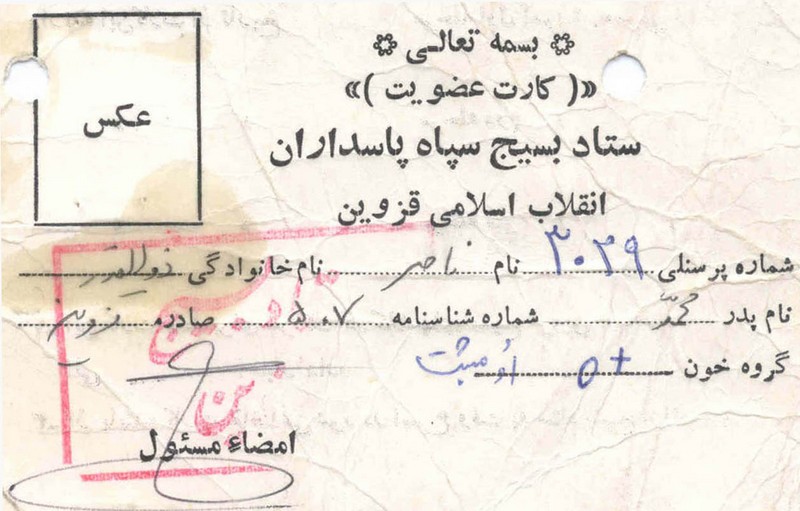 بسمه تعالی
«( کارت عضویت )»
عکس
ستاد بسیج سپاه پاسداران
انقلاب اسلامی قزوین
شماره پرسنلی ۳۰۲۹ نام ناصر نام خانوادگی
نام پدر محمد شماره شناسنامه ۵۰۷ صادره قزوین
گروه خون O+ اُ مثبت
امضاء مسئول